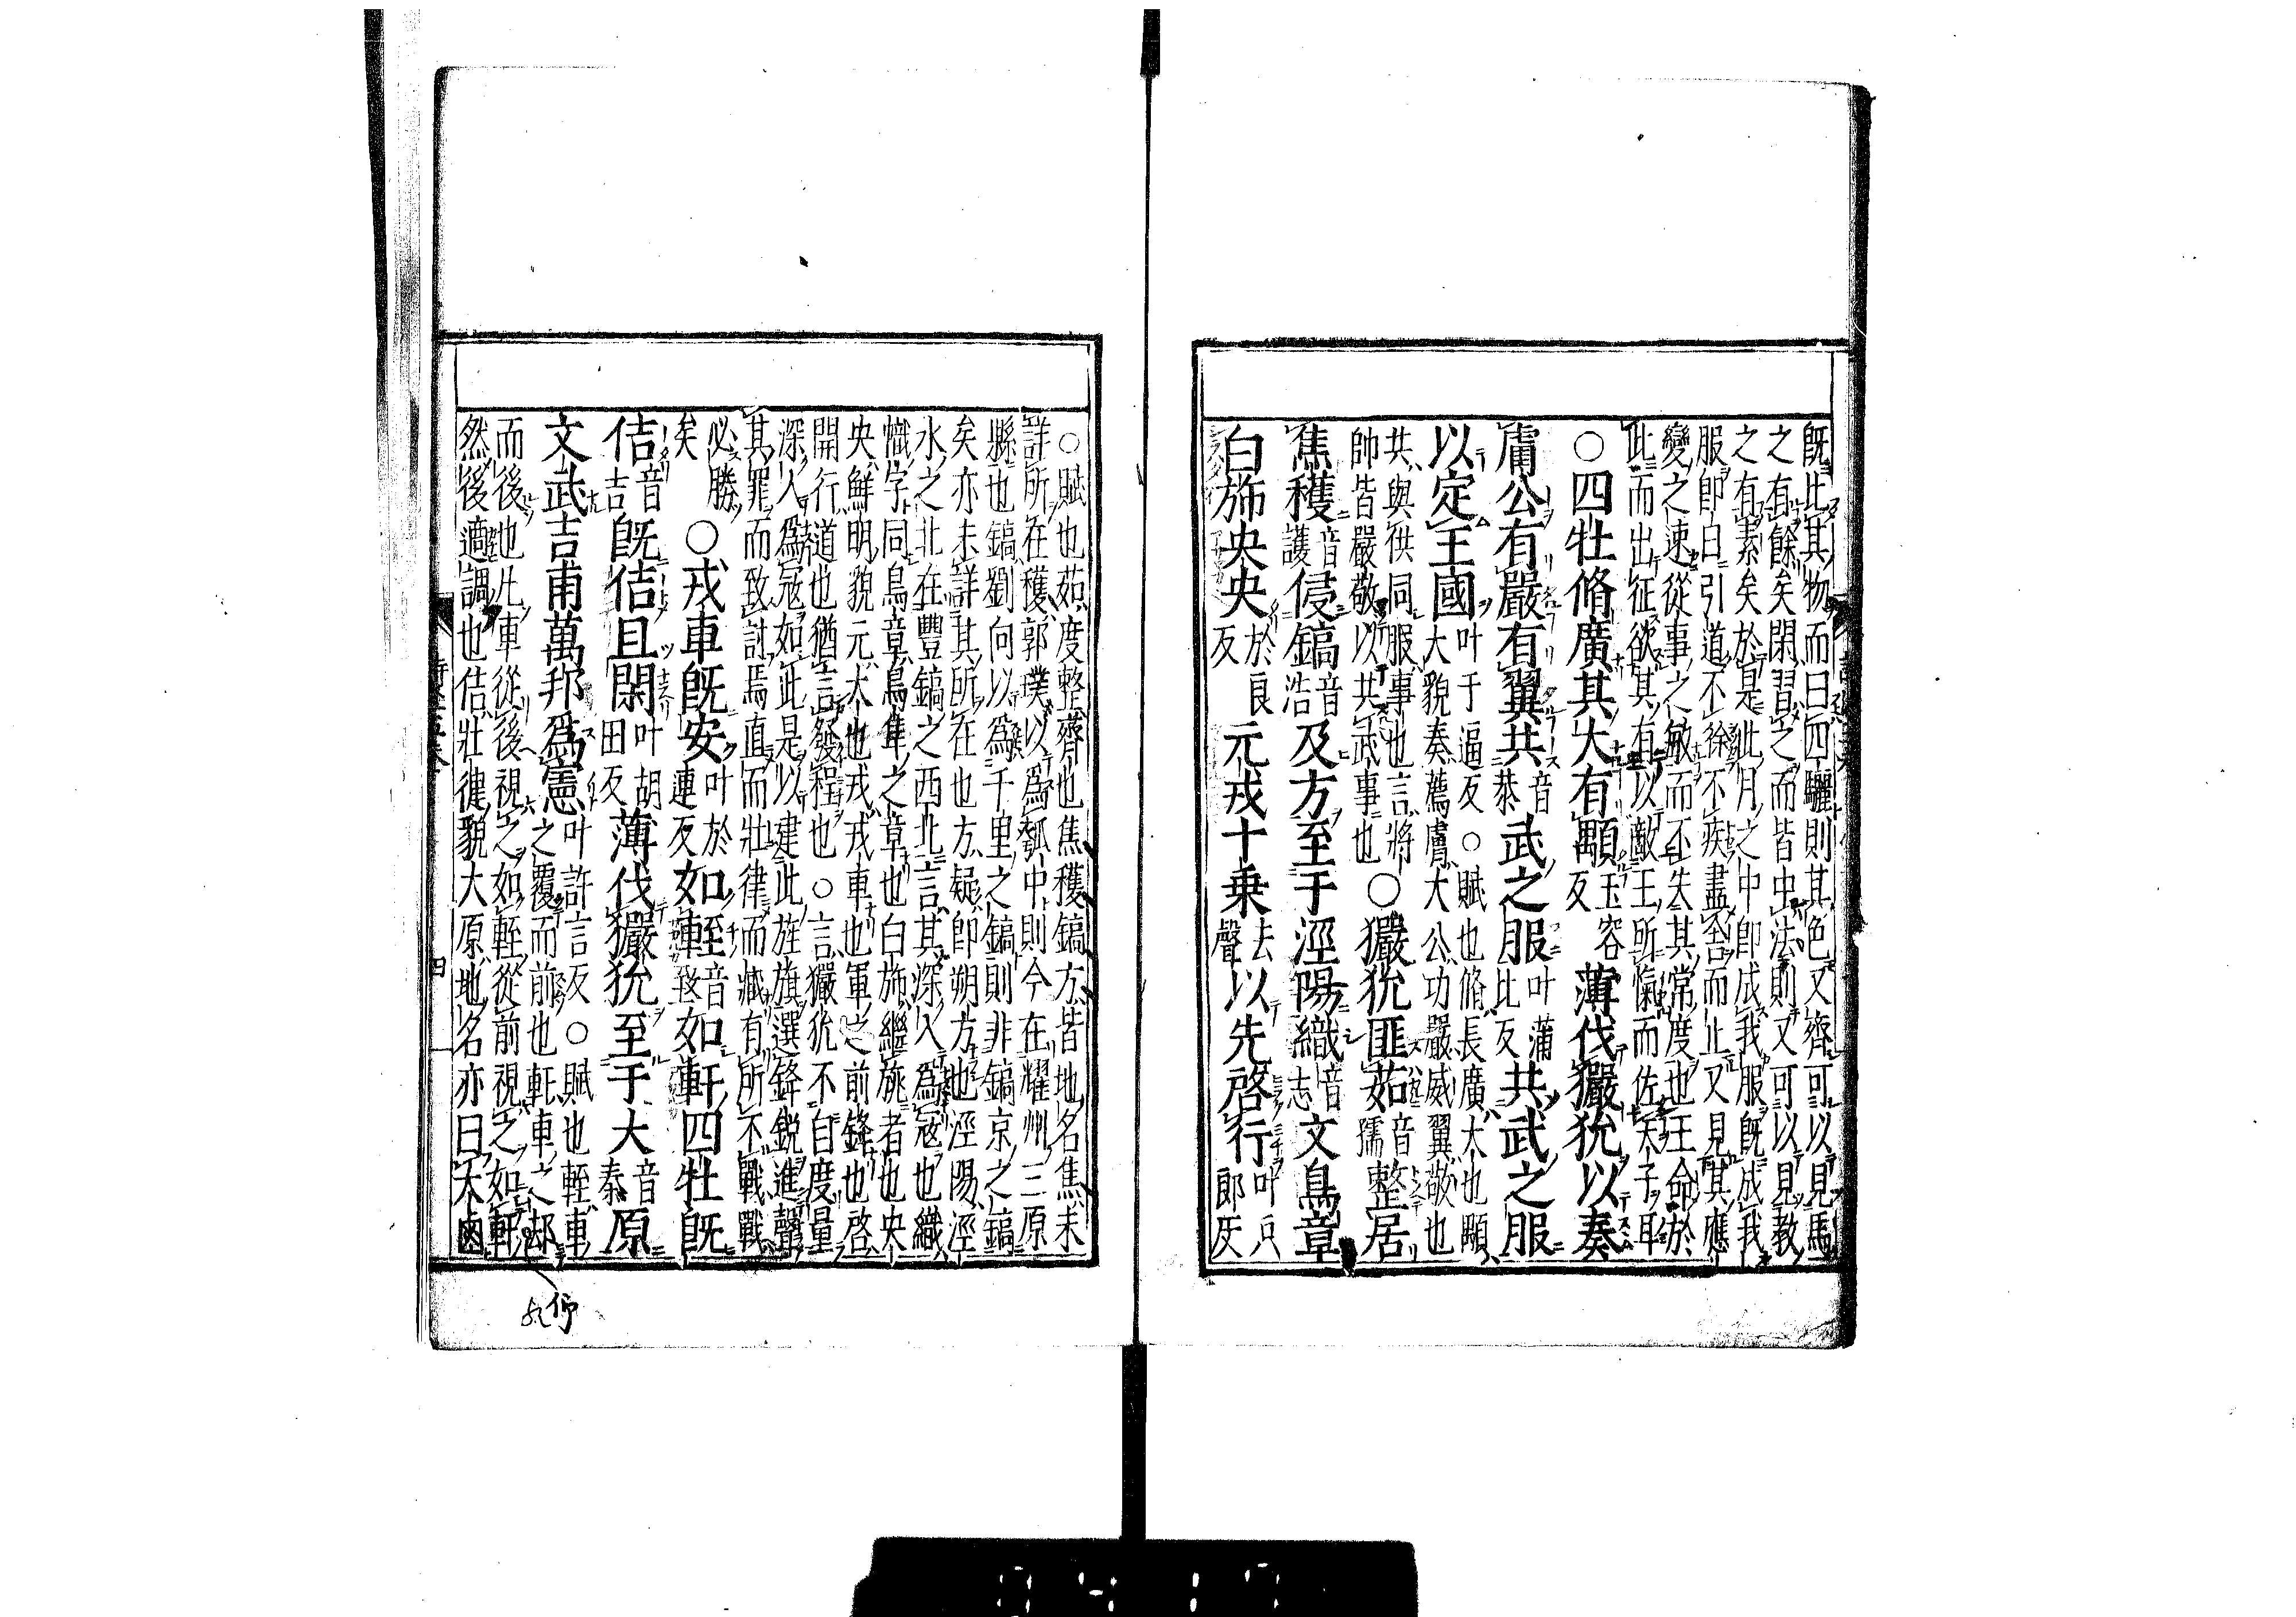 既比其物而曰四驪則其色又齊可以見馬
之有餘矣閑習之而皆中法則又可以見教
之有素矣於是此月之中即成我服既成我
服即日引道不徐不疾盡舍而止又見其應
變之速從事之敏而不失其常度也王命於
此而出征欲其有以敵王所愾而佐天子耳
○四牡脩廣其大有顒玉容反薄伐玁狁以奏
膚公有嚴有翼共音恭武之服叶蒲比反共武之服
以定王國叶于逼反○賦也脩長廣大也顒大貌奏薦膚大公功嚴威翼敬也
共與供同服事也言將帥皆嚴敬以共武事也○玁狁匪茹音孺整居
焦穫音護侵鎬音浩及方至于涇陽織音志文鳥章
白旆央央於良反元戎十乗去聲以先啓行叶戶郎反
○賦也茹度整齊也焦穫鎬方皆地名焦未
詳所在穫郭璞以爲瓠中則今在耀州三原
縣也鎬劉向以爲千里之鎬則非鎬京之鎬
矣亦未詳其所在也方疑即朔方也涇陽涇
水之北在豐鎬之西北言其深入爲寇也織
幟字同鳥章鳥隼之章也白旆繼旐者也央
央鮮明貌元大也戎戎車也軍之前鋒也啓
開行道也猶言發程也○言玁狁不自度量
深入爲寇如此是以建此旌旗選鋒銳進聲
其罪而致討焉直而壯律而臧有所不戰戰
必勝矣○戎車既安叶於連反如輊音致如軒四牡既
佶音吉既佶且閑叶胡田反薄伐玁狁至于大音泰原
文武吉甫萬邦爲憲叶許言反○賦也輊車之覆而前也軒車之却
而後也凡車從後視之如輊從前視之如軒
然後適調也佶壯健貌大原地名亦曰大鹵
四